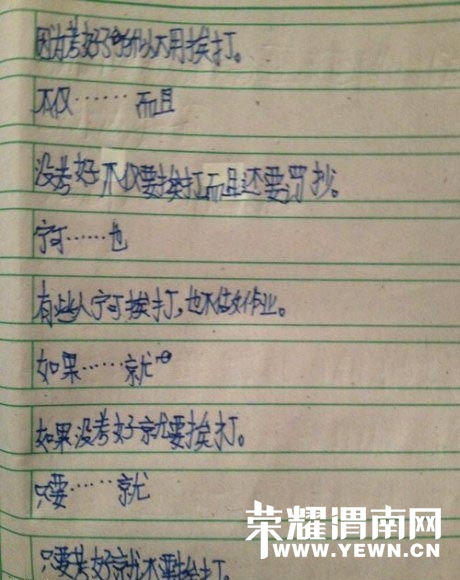 因为考好了所以不用挨打。
不仅……而且
没考好不仅要挨打而且还要罚抄。
宁可……也
有些人宁可挨打,也不做好作业。
如果……就
如果没考好就要挨打。
只要……就
只要考好就不要挨打。
荣耀渭南网
WWW.YEWN.CN